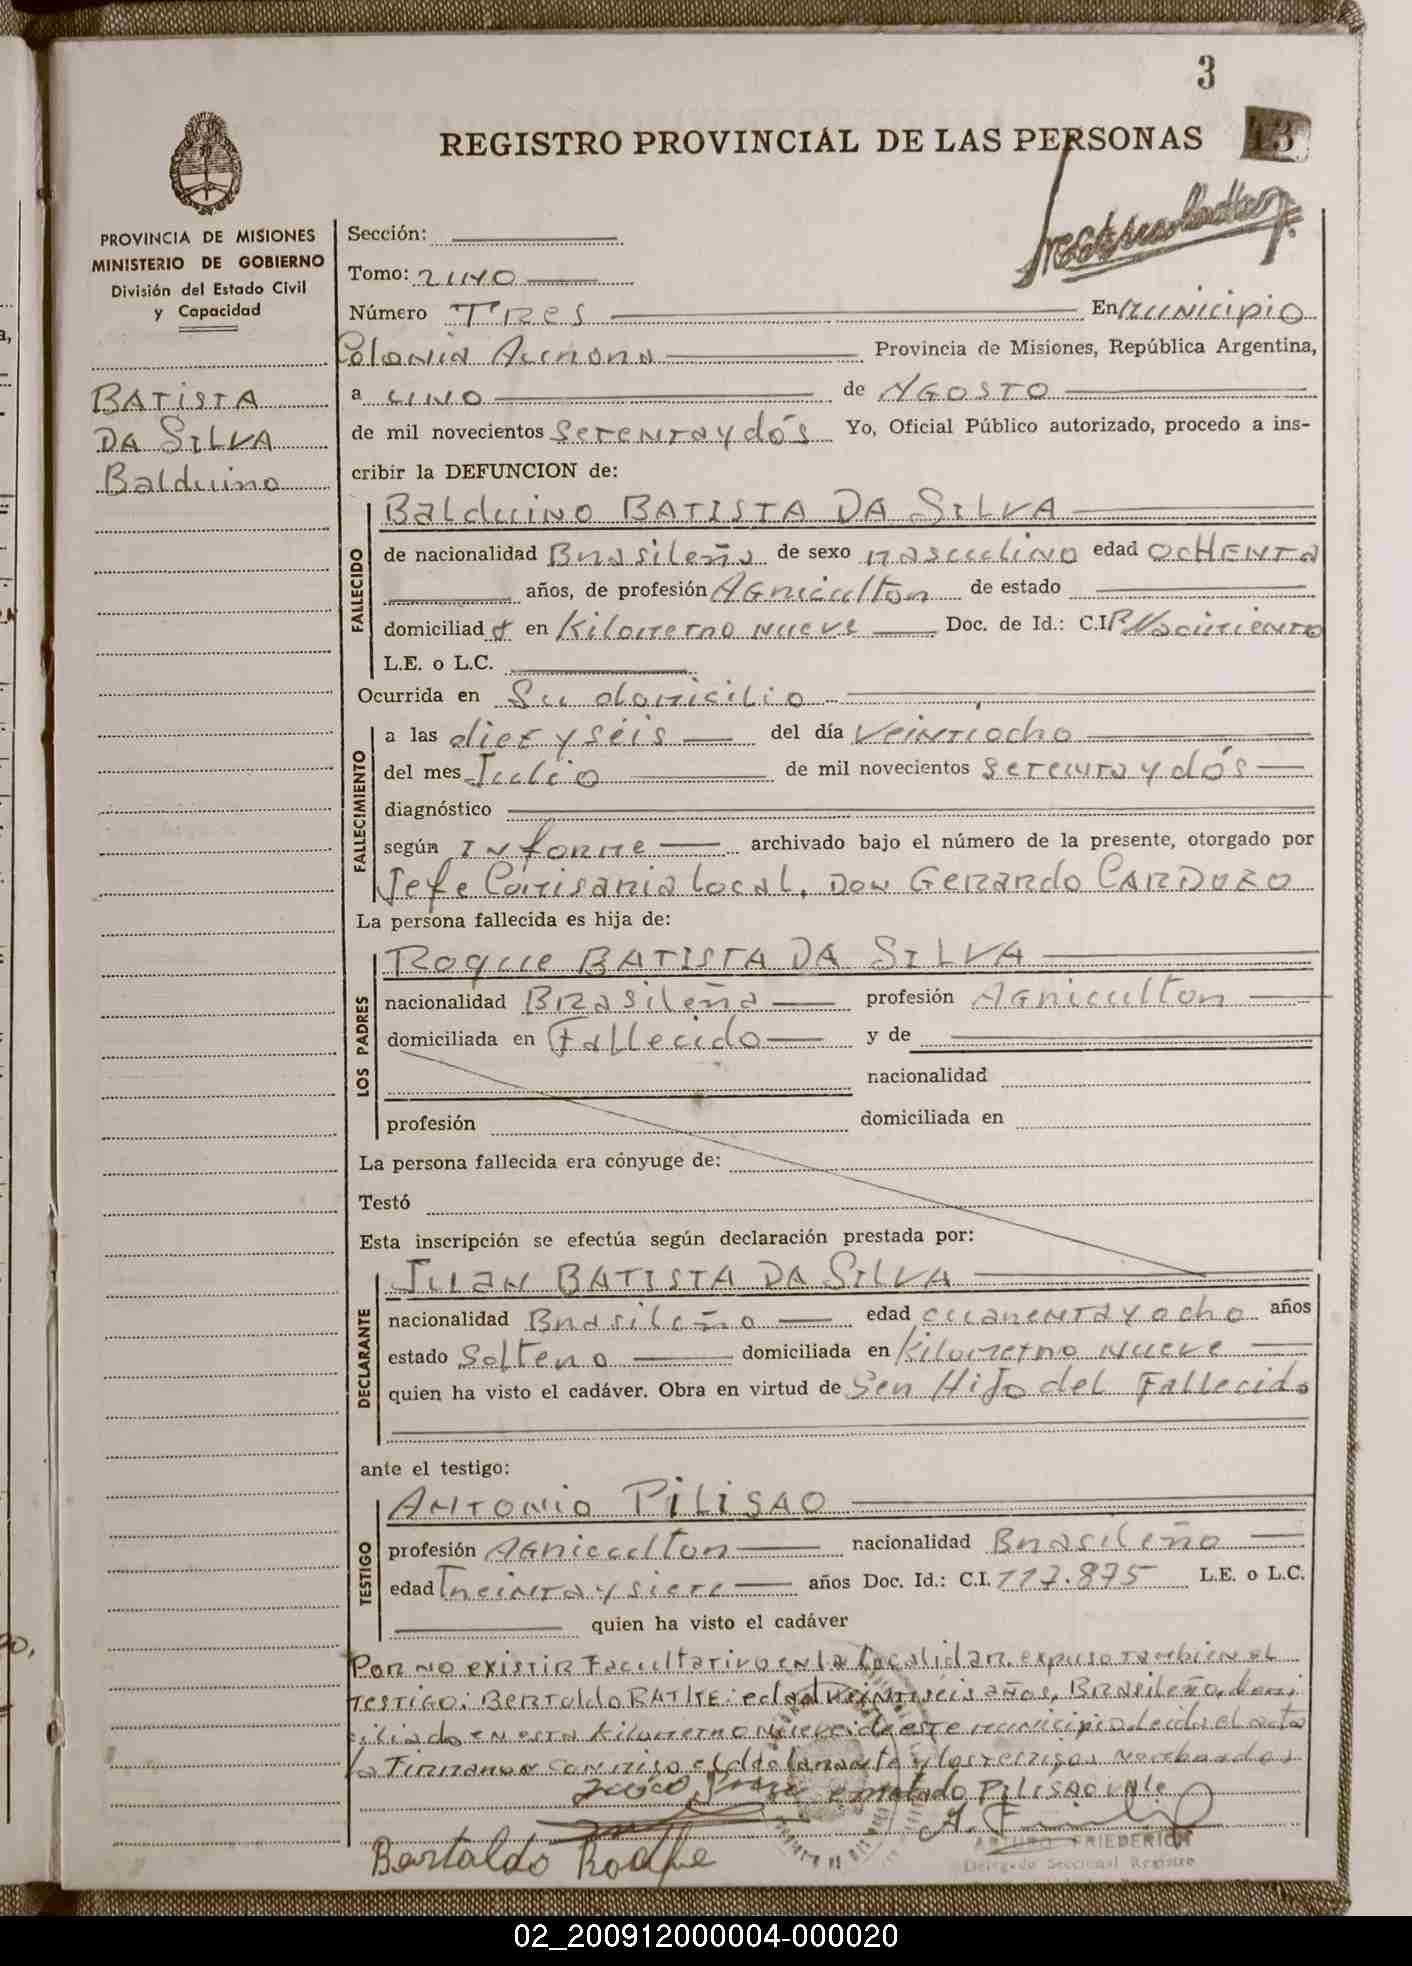 3
REGISTRO PROVINCIAL DE LAS PERSONAS
13
PROVINCIA DE MISIONES
MINISTERIO DE GOBIERNO
División del Estado Civil
y Capacidad
BATISTA
DA SILVA
Balduino
Sección:
Tomo: UNO
Número TRES En Municipio
Colonia Alemana Provincia de Misiones, República Argentina,
a UNO de AGOSTO
de mil novecientos setenta y dós Yo, Oficial Público autorizado, procedo a ins-
cribir la DEFUNCION de:
FALLECIDO
Balduino BATISTA DA SILVA
de nacionalidad Brasileña de sexo masculino edad OCHENTA
años, de profesión Agricultor de estado
domiciliad o en Kilometro nueve Doc. de Id.: C.I. P/Nacimiento
L.E. o L.C.
Ocurrida en Su domicilio
FALLECIMIENTO
a las diez y séis del día Veintiocho
del mes Julio de mil novecientos setenta y dós
diagnóstico
según Informe archivado bajo el número de la presente, otorgado por
Jefe Comisaria local, Don Gerardo CARDOZO
La persona fallecida es hija de:
LOS PADRES
Roque BATISTA DA SILVA
nacionalidad Brasileña profesión Agricultor
domiciliada en Fallecido y de
nacionalidad
profesión domiciliada en
La persona fallecida era cónyuge de:
Testó
Esta inscripción se efectúa según declaración prestada por:
DECLARANTE
Juan BATISTA DA SILVA
nacionalidad Brasileño edad cuarenta y ocho años
estado Soltero domiciliada en Kilometro nueve
quien ha visto el cadáver. Obra en virtud de Ser Hijo del Fallecido
ante el testigo:
TESTIGO
Antonio PILISAO
profesión Agricultor nacionalidad Brasileño
edad Treinta y siete años Doc. Id.: C.I. 117.875 L.E. o L.C.
quien ha visto el cadáver
Por no existir Facultativo en la localidad. expuso tambien el
testigo: BERTOLDO edad veintiseis años, Brasileño, domi
ciliado en esta Kilometro Nueve de este municipio leida el acta
la Firmaron conmigo el declarante y los testigos nombrados
enmendado PILISAO vale
Bertoldo
ARTURO FRIEDERICH
Delegado Seccional Registro
02_200912000004-000020